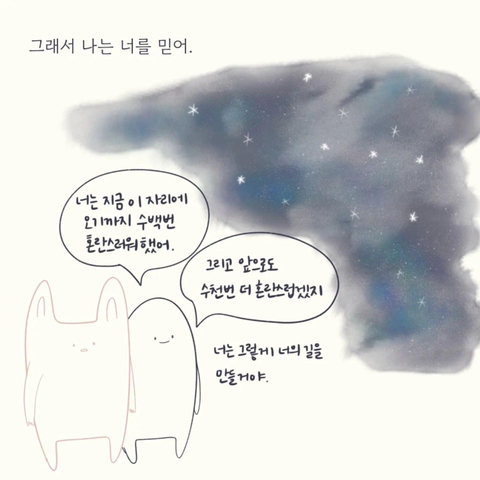 그래서 나는 너를 믿어.
너는 지금 이 자리에
오기까지 수백번
혼란스러워했어.
그리고 앞으로도
수천번 더 혼란스럽겠지
너는 그렇게 너의 길을
만들거야.